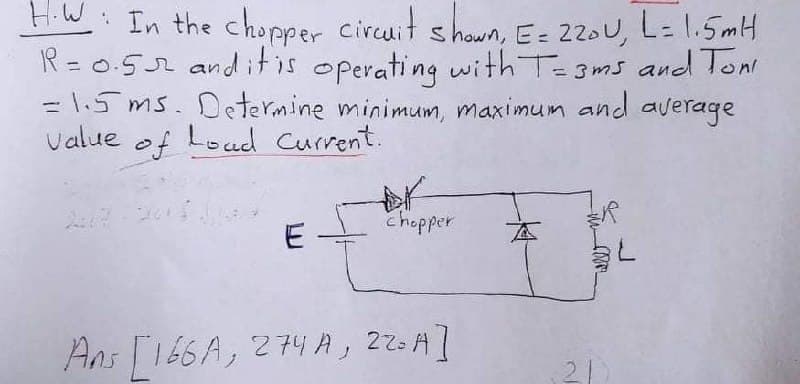 H.W : In the chopper circuit shown, E = 220U, L = 1.5mH
R = 0.5Ω and it is operating with T = 3ms and Ton
= 1.5 ms. Determine minimum, maximum and average
value of Load Current.
chopper
R
E
L
Ans [166A, 274A, 220A]
21